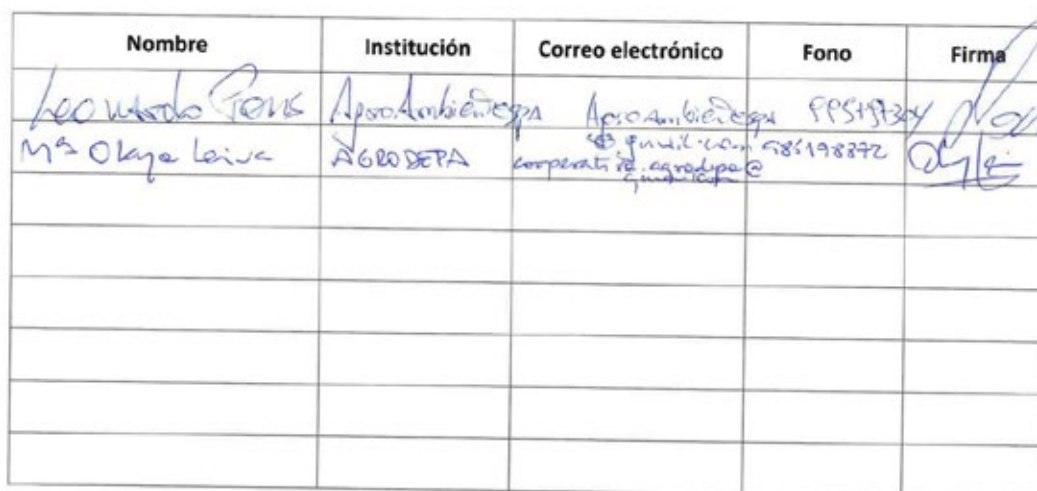 Nombre Institución Correo electrónico Fono Firma
Leonardo AgroAmbiente SPA AgroAmbiente spa
@ gmail.com
Mª Olaya Leiva AGRODEPA cooperativa.agrodepa@ 985198872
gmail.com